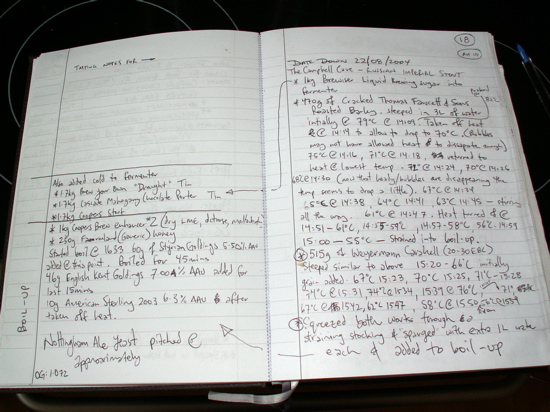 TASTING NOTES FOR
Also added cold to fermenter
* 1.7kg Brew Your Own "Draught" Tin
* 1.7kg Cascade Mahogany Chocolate Porter Tin
* 1.7kg Coopers Stout
* 1kg Coopers Brew Enhancer #2 (dry LME, dextrose, maltodex)
* 250g Farmland (generic) honey
Started boil @ 1633 60g of Styrian Goldings 5.50% AAU
added @ this point. Boiled for 45mins
46g English Kent Goldings 7.00% AAU added for
last 15mins
10g American Sterling 2003 6.3% AAU after
taken off heat.
Nottingham Ale Yeast pitched @
approximately
BOIL-UP
OG: 1.072
18
DATE DOWN: 22/08/2004
The Campbell Cave - Russian Imperial Stout
* 1kg Brewiser Liquid Brewing Sugar into
fermenter
* 490g of Cracked Thomas Fawcett & Sons
Roasted Barley steeped in 3L of water
initially @ 79°C @ 14:09. Taken off heat
@ 14:14 to allow to drop to 70°C. (Bubbles
may not have allowed heat to dissipate enough)
75°C @ 14:16, 71°C @ 14:18, returned to
heat @ lowest temp. 71°C @ 14:24, 70°C @ 14:26
68°C @ 14:30 (now that heady/bubbles are disappearing the
temp seems to drop a little). 67°C @ 14:34
65°C @ 14:38, 64°C 14:41 63°C 14:45 - stirring
all the way. 61°C @ 14:47. Heat turned off @
14:51 - 61°C, 14:55 59°C, 14:57-58°C, 56°C 14:59
15:00 - 55°C - Strained into boil-up.
* 515g of Weyermann Carahell (20-30EBC)
Steeped similar to above 15:20 - 66°C initially
grain added 67°C 15:23, 70°C 15:25, 71°C - 15:28
74°C @ 15:31, 74°C 1534, 1539 @ 76°C
67°C @ 1542, 62°C 1547, 58°C @ 1550
* Squeezed both works through
straining stocking & sparged with extra 1L water
each & added to boil-up